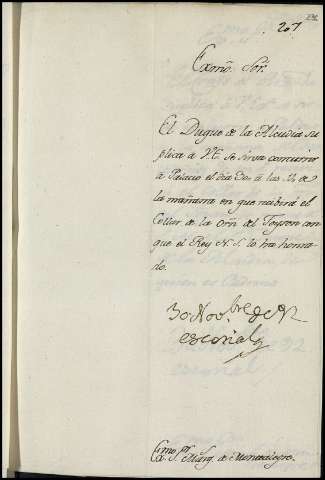 207
Exmo. Sor.
El Duque de la Alcudia su
plica a V.E. se sirva concurrir
a Palacio el dia dos a las 11 de
la mañana en que recibirá el
Collar de la orn. del Toyson con
que el Rey N. S. lo ha honra
do.
30 Novbre de 92
escorial
Exmo. Sr. Marq. de Montealegre.